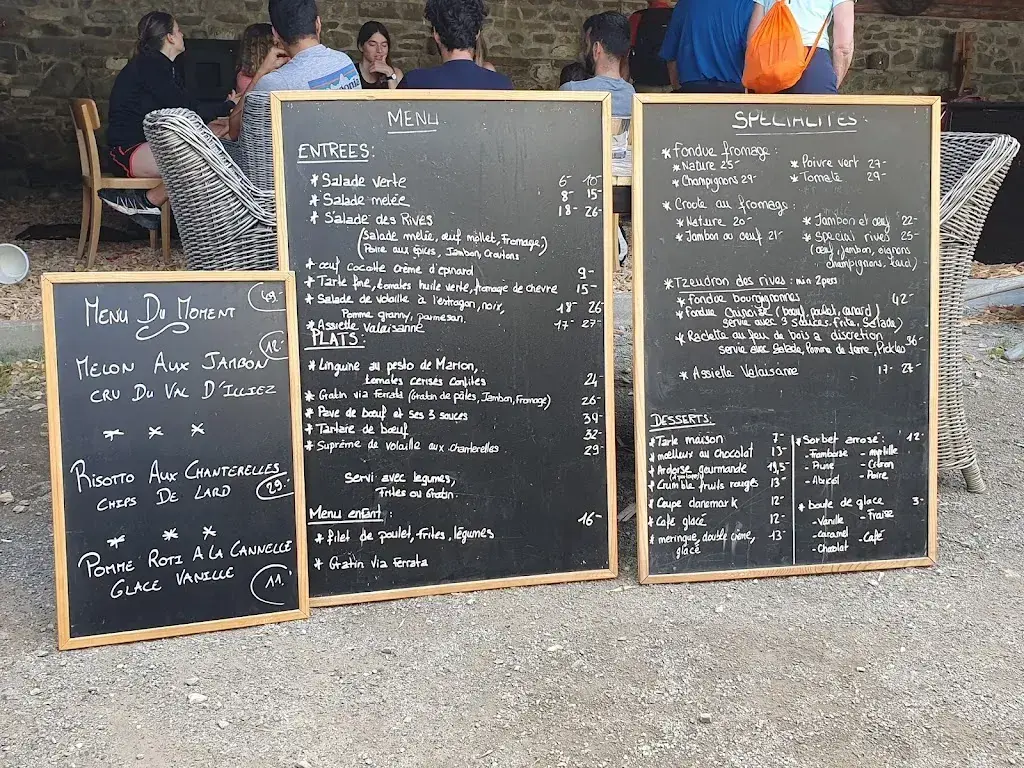 MENU DU MOMENT 49.-
MELON AUX JAMBON 12.-
CRU DU VAL D'ILLIEZ
RISOTTO AUX CHANTERELLES
CHIPS DE LARD 29.-
POMME ROTI A LA CANNELLE
GLACE VANILLE 11.-
MENU
ENTREES:
* Salade verte 6- 10-
* Salade melée 8- 15-
* Salade des RIVES 18- 26-
(Salade mélée, œuf mollet, Fromage,
Poire aux épices, Jambon, Croutons)
* œuf cocotte crème d'épinard 9-
* Tarte fine, tomates huile verte, fromage de chevre 15-
* Salade de volaille à l'estragon, noix, 18- 26
Pomme granny, parmesan.
* Assiette Valaisanne 17- 27-
PLATS:
* Linguine au pesto de Marion,
tomates cerises confites 24
* Gratin via ferrata (Gratin de pâtes, Jambon, Fromage) 26-
* Pave de bœuf et ses 3 sauces 39-
* Tartare de bœuf 32-
* Suprême de volaille aux chanterelles 29-
Servi avec legumes,
Frites ou Gratin.
Menu enfant: 16-
* filet de poulet, frites, légumes
* Gratin Via Ferrata
SPECIALITES:
* Fondue fromage:
* Nature 25- * Poivre vert 27-
* Champignons 29- * Tomate 29-
* Croute au fromage:
* Nature 20- * Jambon et œuf 22-
* Jambon ou œuf 21- * Special rives 25-
(œuf, jambon, oignons
champignons, lard)
* Tzeudron des rives: min 2pers
* Fondue bourgignonne 42-
* Fondue Chinoise (bœuf, poulet, canard)
servie avec 3 sauces, frite, Salade)
* Raclette au feu de bois a discretion 36-
servie avec Salade, Pomme de terre, Pickles
* Assiette Valaisanne 17- 27-
DESSERTS:
* Tarte maison 7-
* moelleux au chocolat 13-
* Ardoise gourmande 19,5-
* Crumble fruits rouges 13-
* Coupe danemark 12-
* Cafe glacé 12-
* meringue, double crème, 13-
glacé
* Sorbet arrosé: 12-
- Framboise - myrtille
- Prune - Citron
- Abricot - Poire
* boule de glace 3-
- Vanille - Fraise
- caramel - Café
- Chocolat